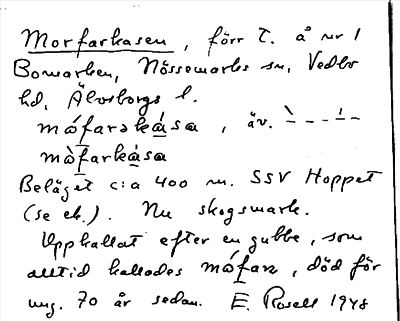 Morfarkasen, förr T. å nr 1
Bomarken, Nössemarks sn, Vedbo
hd, Älvsborgs l.
mófarəkàsa, äv.
mòfarkàsa
Beläget c:a 400 m. SSV Hoppet
(se ek.). Nu skogsmark.
Uppkallat efter en gubbe, som
alltid kallades mófar, död för
ung. 70 år sedan. E. Rosell 1948